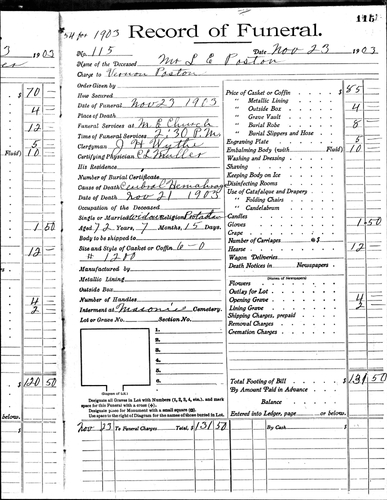 115
3 1903
54 for 1903 Record of Funeral.
No. 115 Date Nov 23 1903
Name of the Deceased Mr L E Poston
Charge to Vernon Poston
Order Given by
How Secured
Date of Funeral Nov 23 1903
Place of Death
Funeral Services at M E Church
Time of Funeral Services 2:30 P.M.
Clergyman J H Wythe
Certifying Physician C L Muller
His Residence
Number of Burial Certificate
Cause of Death Cerebral Hemorhage
Date of Death Nov 21 1903
Occupation of the Deceased
Single or Married Widow Religion
Aged 72 Years, 7 Months, 15 Days.
Body to be shipped to
Size and Style of Casket or Coffin 6-0
# 1200
Manufactured by
Metallic Lining
Outside Box
Number of Handles
Interment at Masonic Cemetery.
Lot or Grave No. Section No.
1.
2.
3.
4.
5.
6.
(Diagram of Lot.)
Designate all Graves in Lot with Numbers (1, 2, 3, 4, etc.), and mark
space for this Funeral with a cross (+).
Designate place for Monument with a small square (□).
Use space to the right of Diagram for the names of those buried in Lot.
Price of Casket or Coffin $ 85
" Metallic Lining
" Outside Box 4
" Grave Vault
" Burial Robe 8
" Burial Slippers and Hose 5
Engraving Plate
Embalming Body (with Fluid) 10
Washing and Dressing
Shaving
Keeping Body on Ice
Disinfecting Rooms
Use of Catafalque and Drapery
" Folding Chairs
" Candelabrum
Candles
Gloves 1 50
Crape
Number of Carriages @ $
Hearse 12
Wagon Deliveries
Death Notices in Newspapers
(Names of Newspapers)
Flowers
Outlay for Lot
Opening Grave 4
Lining Grave 2
Shipping Charges, prepaid
Removal Charges
Cremation Charges
Total Footing of Bill $ 131 50
By Amount Paid in Advance
Balance
Entered into Ledger, page or below.
Nov 23 To Funeral Charges Total, $ 131 50 By Cash $
$ 70
4
12
5
Fluid) 10
1 50
12
4
2
$ 120 50
or below.
$